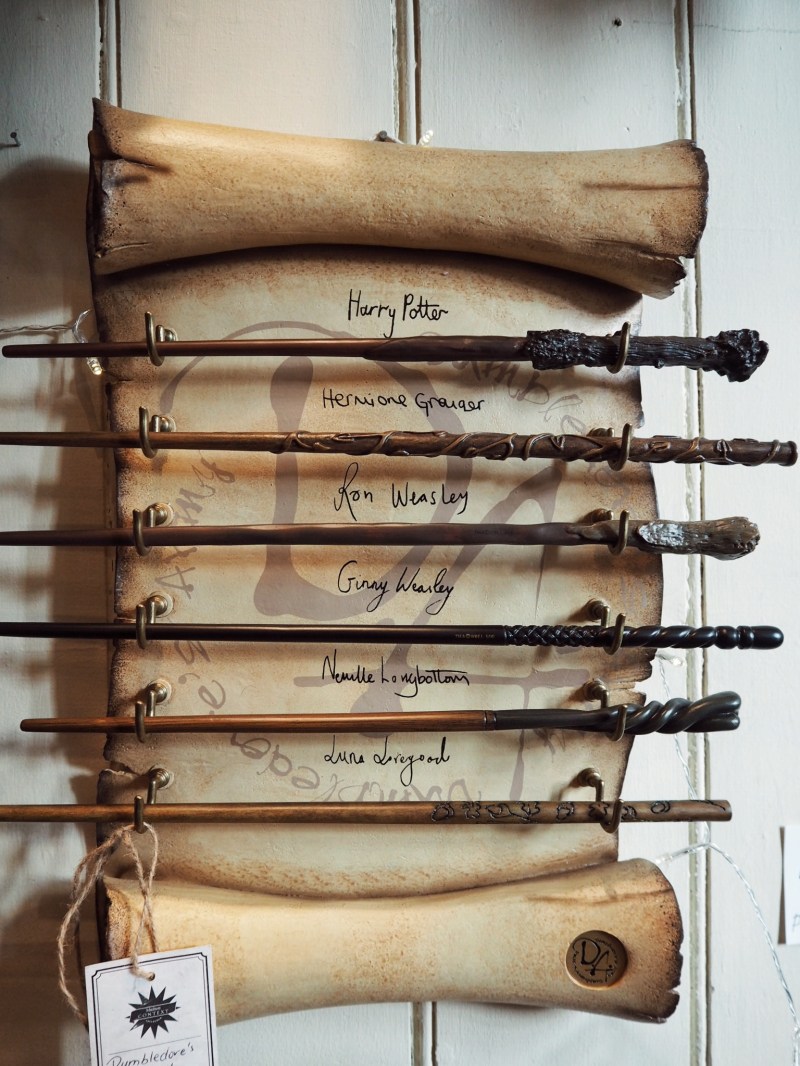 Harry Potter
Hermione Granger
Ron Weasley
Ginny Weasley
Neville Longbottom
Luna Lovegood
DA
CONTEXT
Dumbledore's